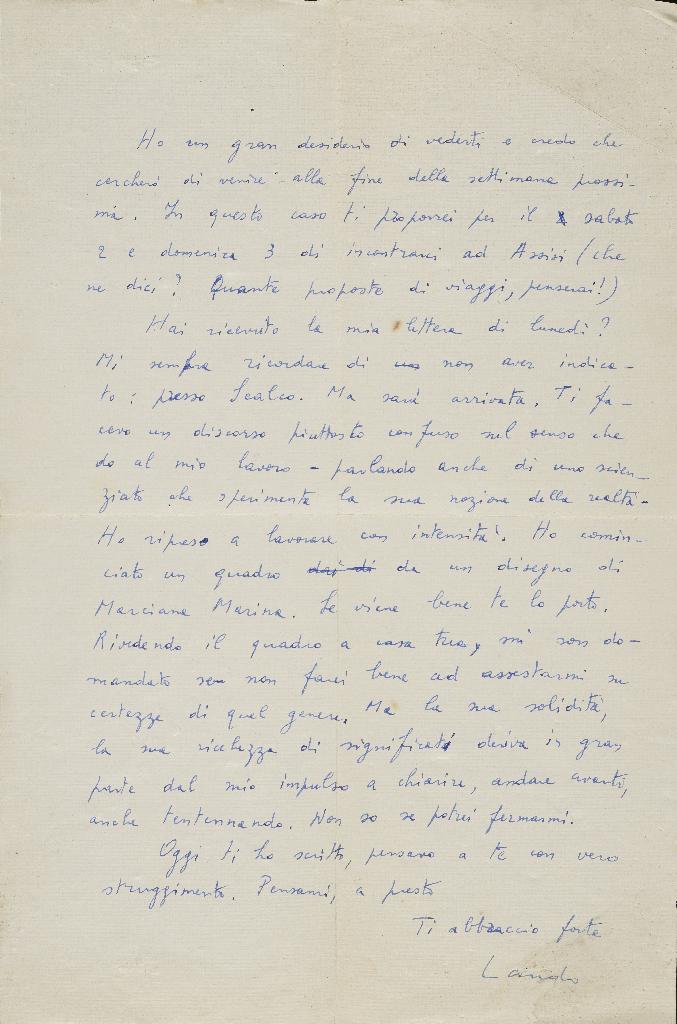 Ho un gran desiderio di vederti e credo che
cercherò di venire alla fine della settimana prossi-
ma. In questo caso ti proporrei per il sabato
2 e domenica 3 di incontrarci ad Assisi (che
ne dici? Quante proposte di viaggi, penserai!)
Hai ricevuto la mia lettera di lunedì?
Mi sembra ricordare di non aver indica-
to: presso Scalco. Ma sarà arrivata. Ti fa-
cevo un discorso piuttosto confuso sul senso che
do al mio lavoro - parlando anche di uno scien-
ziato che sperimenta la sua nozione della realtà-
Ho ripreso a lavorare con intensità. Ho comin-
ciato un quadro dai di da un disegno di
Marciana Marina. Se viene bene te lo porto.
Rivedendo il quadro a casa tua, mi son do-
mandato se non farei bene ad assestarmi su
certezze di quel genere. Ma la sua solidità,
la sua ricchezza di significati deriva in gran
parte dal mio impulso a chiarire, andare avanti,
anche tentennando. Non so se potrei fermarmi.
Oggi ti ho scritto, pensavo a te con vero
struggimento. Pensami, a presto
Ti abbraccio forte
Lando